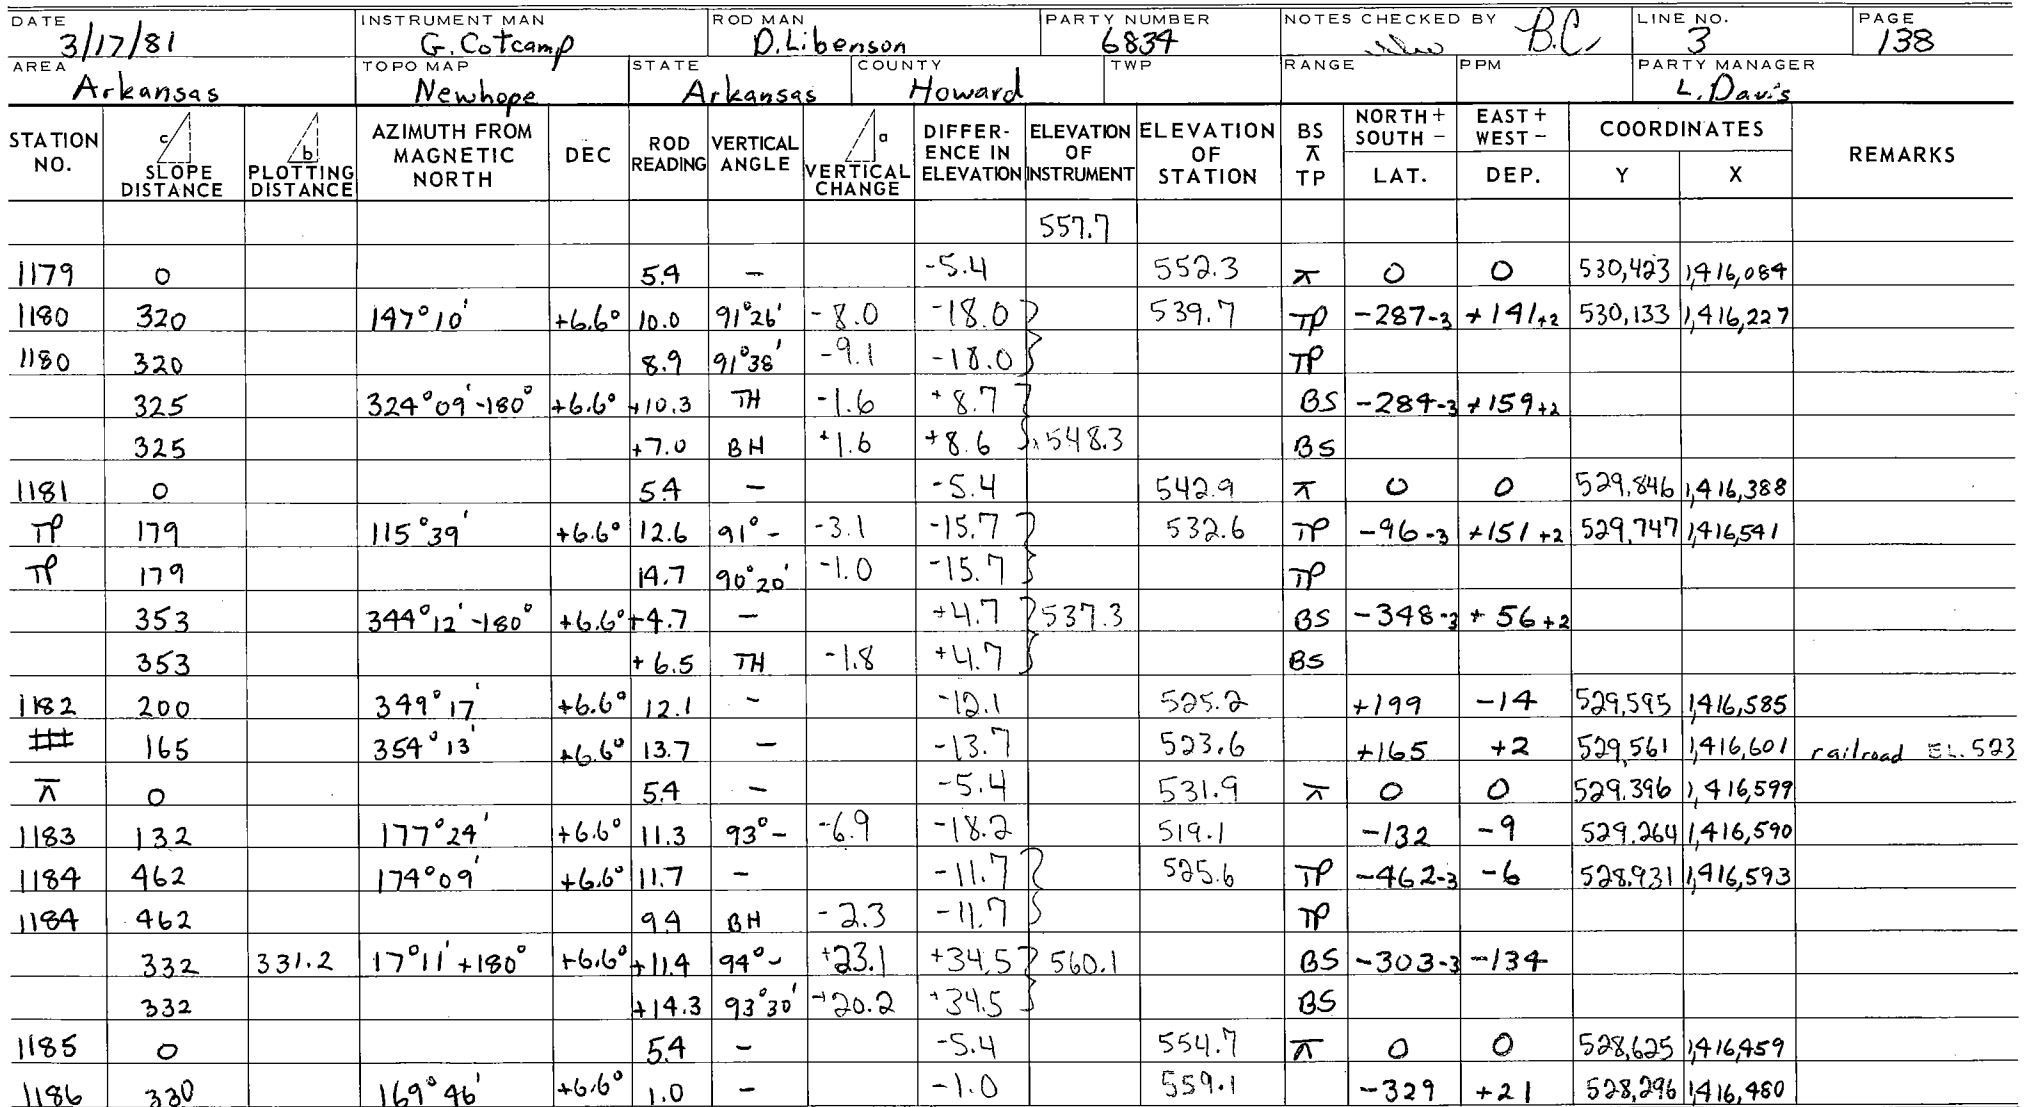 DATE 3/17/81 INSTRUMENT MAN G. Cotcamp ROD MAN D. Libenson PARTY NUMBER 6834 NOTES CHECKED BY B.C. LINE NO. 3 PAGE 138
AREA Arkansas TOPO MAP Newhope STATE Arkansas COUNTY Howard TWP RANGE PPM PARTY MANAGER L. Davis
STATION NO. c SLOPE DISTANCE b PLOTTING DISTANCE AZIMUTH FROM MAGNETIC NORTH DEC ROD READING VERTICAL ANGLE a VERTICAL CHANGE DIFFER-ENCE IN ELEVATION ELEVATION OF INSTRUMENT ELEVATION OF STATION BS ⊼ TP NORTH + SOUTH - LAT. EAST + WEST - DEP. COORDINATES Y X REMARKS
557.7
1179 0 5.4 - -5.4 552.3 ⊼ 0 0 530,423 1,416,084
1180 320 147°10' +6.6° 10.0 91°26' -8.0 -18.0 539.7 TP -287-3 +141+2 530,133 1,416,227
1180 320 8.9 91°38' -9.1 -18.0 TP
325 324°09'-180° +6.6° +10.3 TH -1.6 +8.7 BS -284-3 +159+2
325 +7.0 BH +1.6 +8.6 548.3 BS
1181 0 5.4 - -5.4 542.9 ⊼ 0 0 529,846 1,416,388
TP 179 115°39' +6.6° 12.6 91°- -3.1 -15.7 532.6 TP -96-3 +151+2 529,747 1,416,541
TP 179 14.7 90°20' -1.0 -15.7 TP
353 344°12'-180° +6.6° +4.7 - +4.7 537.3 BS -348-3 +56+2
353 +6.5 TH -1.8 +4.7 BS
1182 200 349°17' +6.6° 12.1 - -12.1 525.2 +199 -14 529,595 1,416,585
165 354°13' +6.6° 13.7 - -13.7 523.6 +165 +2 529,561 1,416,601 railroad EL. 523
⊼ 0 5.4 - -5.4 531.9 ⊼ 0 0 529,396 1,416,599
1183 132 177°24' +6.6° 11.3 93°- -6.9 -18.2 519.1 -132 -9 529,264 1,416,590
1184 462 174°09' +6.6° 11.7 - -11.7 525.6 TP -462-3 -6 528,931 1,416,593
1184 462 9.4 BH -2.3 -11.7 TP
332 331.2 17°11'+180° +6.6° +11.4 94°- +23.1 +34.5 560.1 BS -303-3 -134
332 +14.3 93°30' +20.2 +34.5 BS
1185 0 5.4 - -5.4 554.7 ⊼ 0 0 528,625 1,416,459
1186 330 169°46' +6.6° 1.0 - -1.0 559.1 -329 +21 528,296 1,416,480